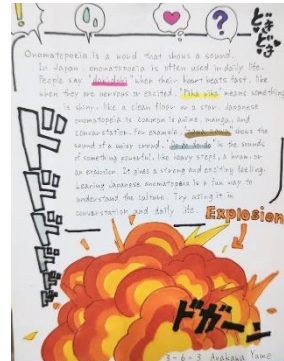 !
?
どき
どき
Onomatopoeia is a word that shows a sound.
In Japan, onomatopoeia is often used in daily life.
People say "doki doki" when their heart beats fast, like
when they are nervous or excited. "Pika pika" means something
is shiny, like a clean floor or a star. Japanese
onomatopeia is common is anime, manga, and
conversation. For example, shows the
sound of a noisy crowd. is the sounds
of something powerful, like heavy steps, a drum, or
an explosion. It gives a strong and exciting feeling.
Learning Japanese onomatopoeia is a fun way to
understand the culture. Try using it in
conversation and daily life.
ゴゴゴゴ
Explosion
ドガーン
3-6-3 Arakawa Yume